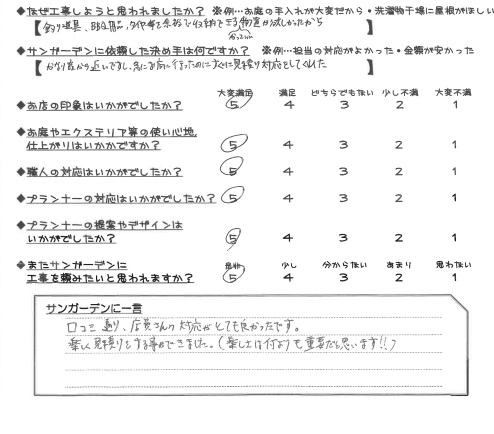 ◆なぜ工事しようと思われましたか？ ※例…お庭の手入れが大変だから・洗濯物干場に屋根がほしい
【釣り道具、BBQ用品、タイヤ等を余裕で収納できる物置が欲しかったから】
◆サンガーデンに依頼した決め手は何ですか？ ※例…担当の対応がよかった・金額が安かった
【かなり前から近いですし、急にお店に行ったのにすぐに見積り対応をしてくれた】
大変満足 満足 どちらでもない 少し不満 大変不満
◆お店の印象はいかがでしたか？ 5 4 3 2 1
◆お庭やエクステリア等の使い心地、
仕上がりはいかかですか？ 5 4 3 2 1
◆職人の対応はいかがでしたか？ 5 4 3 2 1
◆プランナーの対応はいかがでしたか？ 5 4 3 2 1
◆プランナーの提案やデザインは
いかがでしたか？ 5 4 3 2 1
◆またサンガーデンに 是非 少し 分からない あまり 思わない
工事を頼みたいと思われますか？ 5 4 3 2 1
サンガーデンに一言
口コミ通り、店員さんの対応がとても良かったです。
楽しく見積りをする事ができました。（楽しさは何よりも重要だと思います!!）